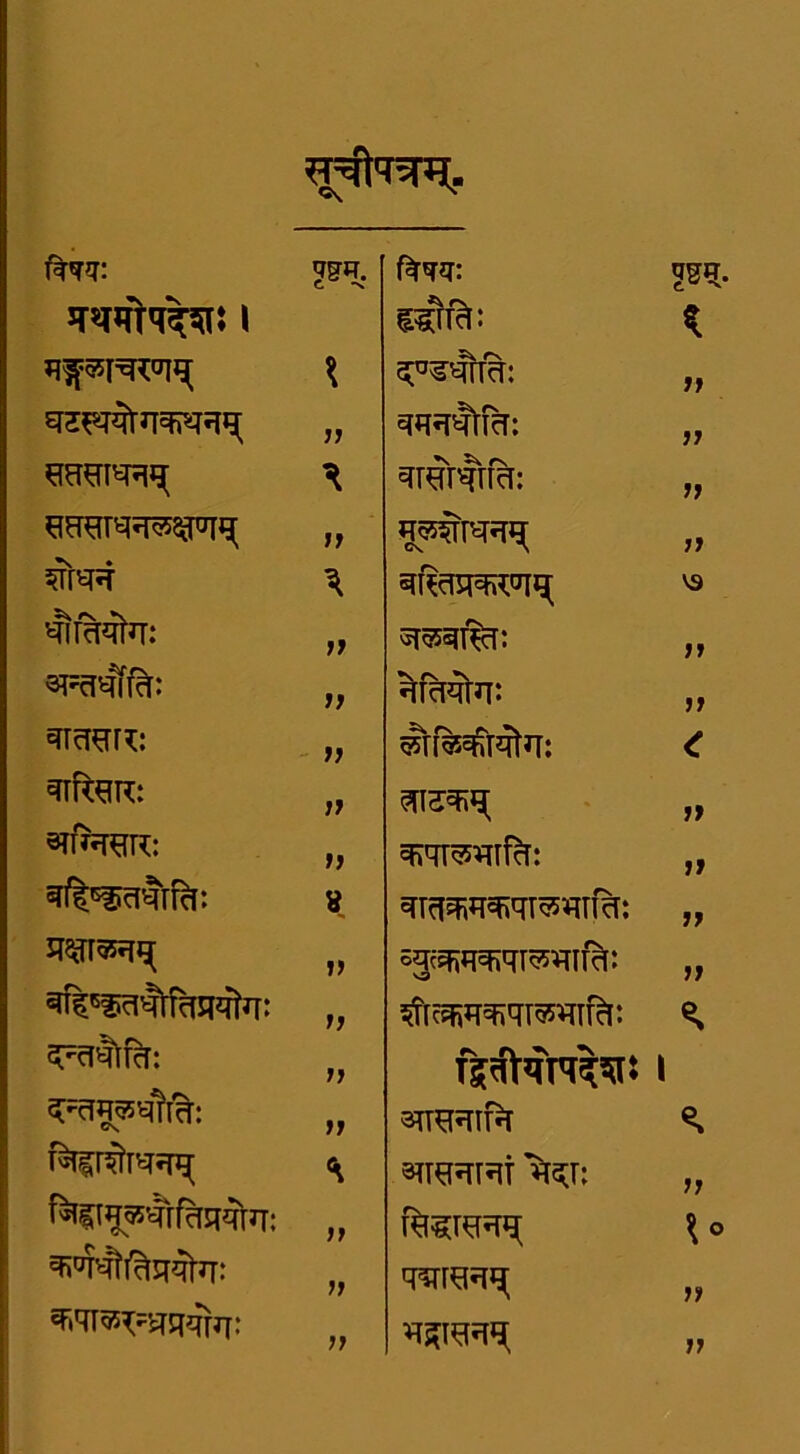 सूचीपत्रम्.
विषयः पृष्ठम्.
प्रथमोपदेशः ।
मङ्गलाचरणम् १
घटस्थयोगकथनम् ,,
सप्तसाधनम् २
सप्तसाधनलक्षणम् ,,
शोधनं ३
धौतियोगः ,,
अन्तर्धौतिः ,,
वातसारः ,,
वारिसारः ,,
अग्निसारः ,,
बहिष्कृतधौतिः ४
प्रक्षालनम् ,,
बहिष्कृतधौतिप्रयोगः ,,
दन्तधौतिः ,,
दन्तमूलधौतिः ,,
जिह्वाशोधनम् ५
जिह्वामूलधौतिप्रयोगः ,,
कर्णधौतिप्रयोगः ,,
कपालरन्ध्रप्रयोगः ,,
विषयः पृष्ठम्.
हृद्धौतिः ६
दण्डधौतिः ,,
वमनधौतिः ,,
वासोधौतिः ,,
मूलशोधनम् ,,
बस्तिप्रकरणम् ७
जलबस्तिः ,,
नेतियोगः ,,
लौलिकीयोगः ८
त्राटकम् ,,
कपालभातिः ,,
वातक्रमकपालभातिः ,,
व्युत्क्रमकपालभातिः ,,
शीत्क्रमकपालभातिः ९
द्वितीयोपदेशः ।
आसनानि ९
आसनानां भेदः ,,
सिद्धासनम् १०
पद्मासनम् ,,
भद्रासनम् ,,